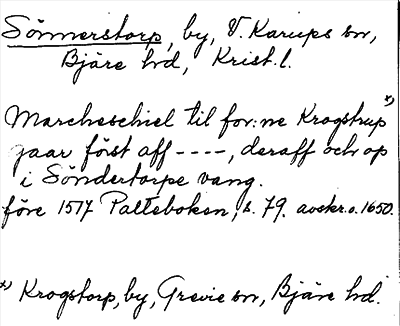 Sönnerstorp, by, V. Karups sn,
Bjäre hd, Krist. l.
Marcheschiel til for:ne Krogstrup *)
gaar först aff ----, deraff och op
i Söndertorpe vang.
före 1517 Palteboken, s. 79. avskr. o. 1650.
*) Krogstorp, by, Grevie sn, Bjäre hd.